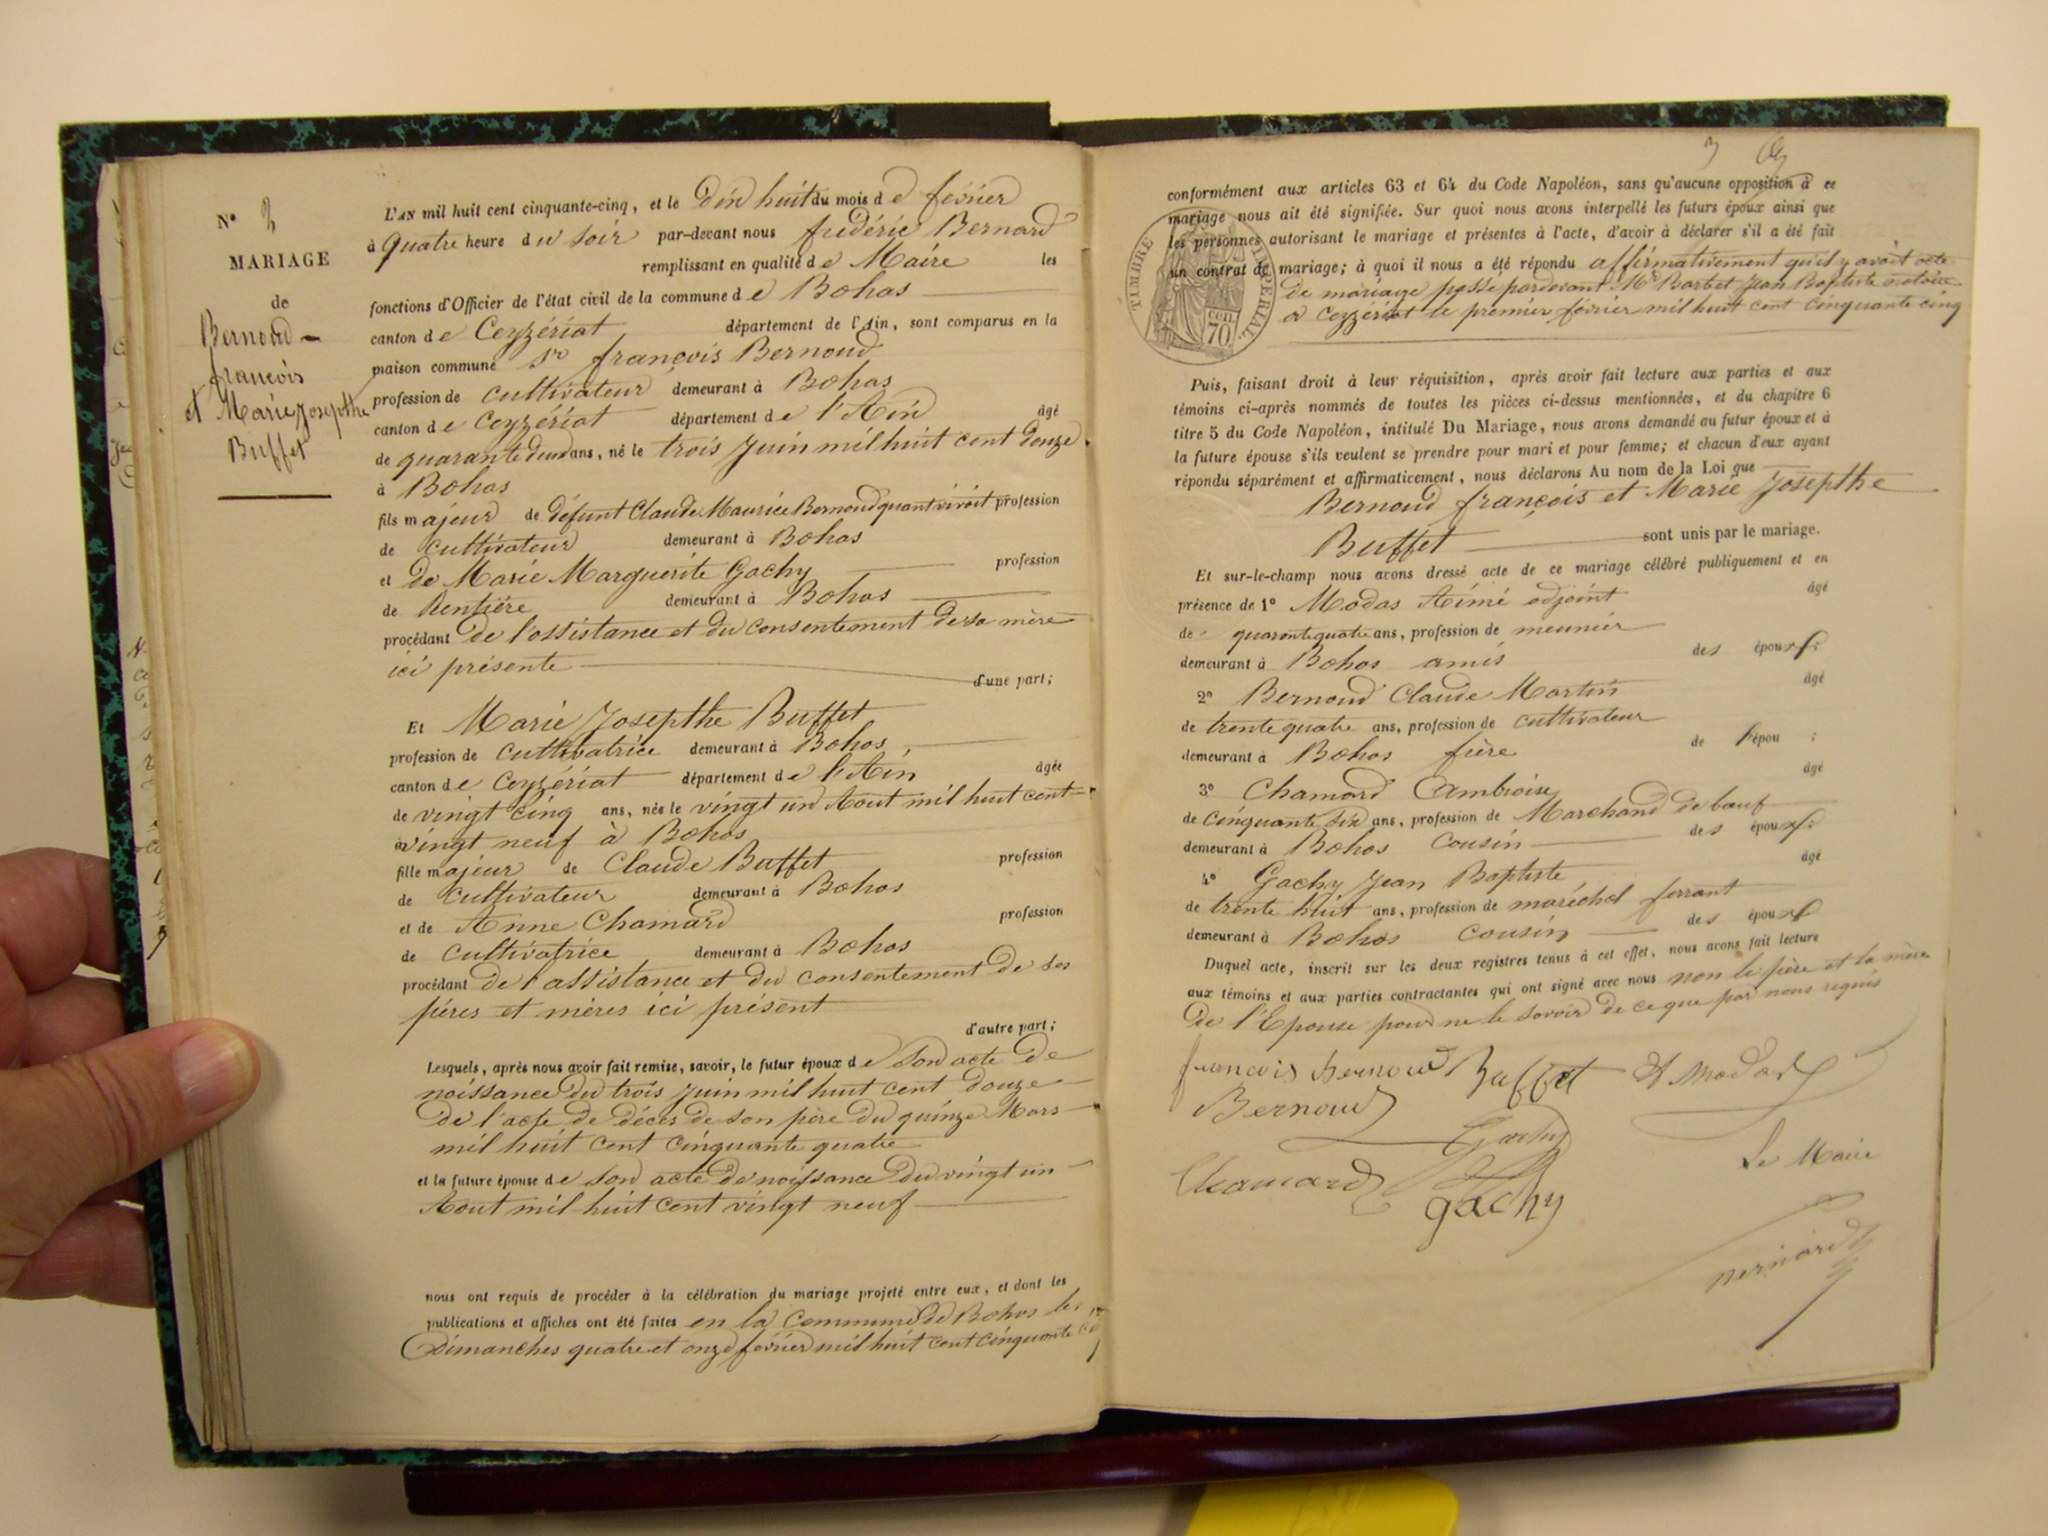 N° 3
MARIAGE
de
Bernoud
françois
et Marie Josepthe
Buffet
L'AN mil huit cent cinquante-cinq, et le dix huit du mois de février
à quatre heure du soir par-devant nous frédéric Bernard
remplissant en qualité de Maire les
fonctions d'Officier de l'état civil de la commune de Bohas
canton de Ceyzériat département de l'Ain, sont comparus en la
maison commune Sr françois Bernoud
profession de cultivateur demeurant à Bohas
canton de Ceyzériat département de l'Ain âgé
de quarante deux ans, né le trois Juin mil huit cent douze
à Bohas
fils majeur de défunt Claude Maurice Bernoud quant vivait profession
de cultivateur demeurant à Bohas
et de Marie Marguerite Gachy profession
de Rentière demeurant à Bohas
procédant de l'assistance et du consentement de sa mère
ici présente
d'une part;
Et Marie Josepthe Buffet
profession de cultivatrice demeurant à Bohas,
canton de Ceyzériat département de l'Ain âgée
de vingt cinq ans, née le vingt un Aout mil huit cent
vingt neuf à Bohas
fille majeur de Claude Buffet profession
de cultivateur demeurant à Bohas
et de Anne Chamard profession
de cultivatrice demeurant à Bohas
procédant de l'assistance et du consentement de ses
pères et mères ici présent
d'autre part;
Lesquels, après nous avoir fait remise, savoir, le futur époux de son acte de
naissance du trois Juin mil huit cent douze
de l'acte de décès de son père du quinze Mars
mil huit cent cinquante quatre
et la future épouse de son acte de naissance du vingt un
Aout mil huit cent vingt neuf
nous ont requis de procéder à la célébration du mariage projeté entre eux, et dont les
publications et affiches ont été faites en la Commune de Bohas les
Dimanches quatre et onze février mil huit cent cinquante cinq
conformément aux articles 63 et 64 du Code Napoléon, sans qu'aucune opposition à ce
mariage nous ait été signifiée. Sur quoi nous avons interpellé les futurs époux ainsi que
les personnes autorisant le mariage et présentes à l'acte, d'avoir à déclarer s'il a été fait
un contrat de mariage; à quoi il nous a été répondu affirmativement qu'il y avait acte
de mariage passé pardevant Me Barbet Jean Baptiste notaire
à Ceyzériat le premier février mil huit cent cinquante cinq
TIMBRE IMPERIAL
70 cen
Puis, faisant droit à leur réquisition, après avoir fait lecture aux parties et aux
témoins ci-après nommés de toutes les pièces ci-dessus mentionnées, et du chapitre 6
titre 5 du Code Napoléon, intitulé Du Mariage, nous avons demandé au futur époux et à
la future épouse s'ils veulent se prendre pour mari et pour femme; et chacun d'eux ayant
répondu séparément et affirmativement, nous déclarons Au nom de la Loi que
Bernoud françois et Marie Josepthe
Buffet sont unis par le mariage.
Et sur-le-champ nous avons dressé acte de ce mariage célébré publiquement et en
présence de 1° Modas Aimé adjoint âgé
de quarante quatre ans, profession de meunier
demeurant à Bohas amis des époux;
2° Bernoud Claude Martin âgé
de trente quatre ans, profession de cultivateur
demeurant à Bohas frère de l'épou ;
3° Chamard Ambroise âgé
de cinquante six ans, profession de Marchand de bœuf
demeurant à Bohas cousin des époux;
4° Gachy Jean Baptiste âgé
de trente huit ans, profession de maréchal ferrant
demeurant à Bohas cousin des époux
Duquel acte, inscrit sur les deux registres tenus à cet effet, nous avons fait lecture
aux témoins et aux parties contractantes qui ont signé avec nous non le père et la mère
de l'Epouse pour ne le savoir de ce que par nous requis
francois bernoud Buffet A Modas
Bernoud
Gachy
Le Maire
Chamard
gachy
Bernard